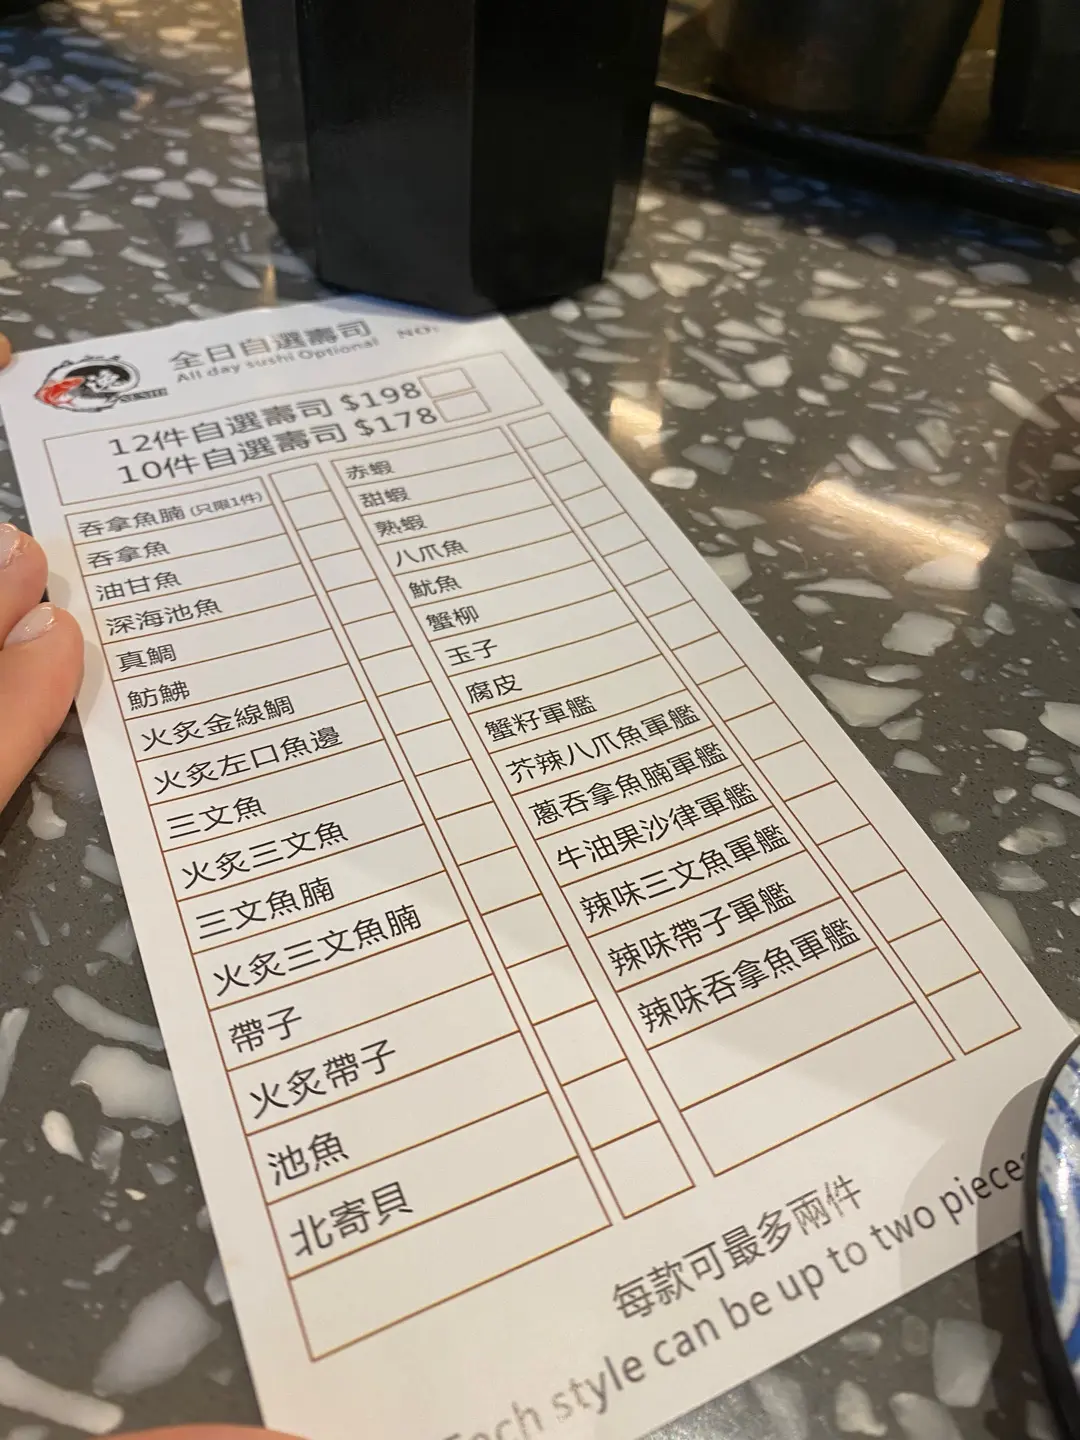 全日自選壽司 NO:
All day sushi Optional
12件自選壽司 $198
10件自選壽司 $178
吞拿魚腩 (只限1件)
吞拿魚
油甘魚
深海池魚
真鯛
魴鮄
火炙金線鯛
火炙左口魚邊
三文魚
火炙三文魚
三文魚腩
火炙三文魚腩
帶子
火炙帶子
池魚
北寄貝
赤蝦
甜蝦
熟蝦
八爪魚
魷魚
蟹柳
玉子
腐皮
蟹籽軍艦
芥辣八爪魚軍艦
蔥吞拿魚腩軍艦
牛油果沙律軍艦
辣味三文魚軍艦
辣味帶子軍艦
辣味吞拿魚軍艦
每款可最多兩件
Each style can be up to two pieces